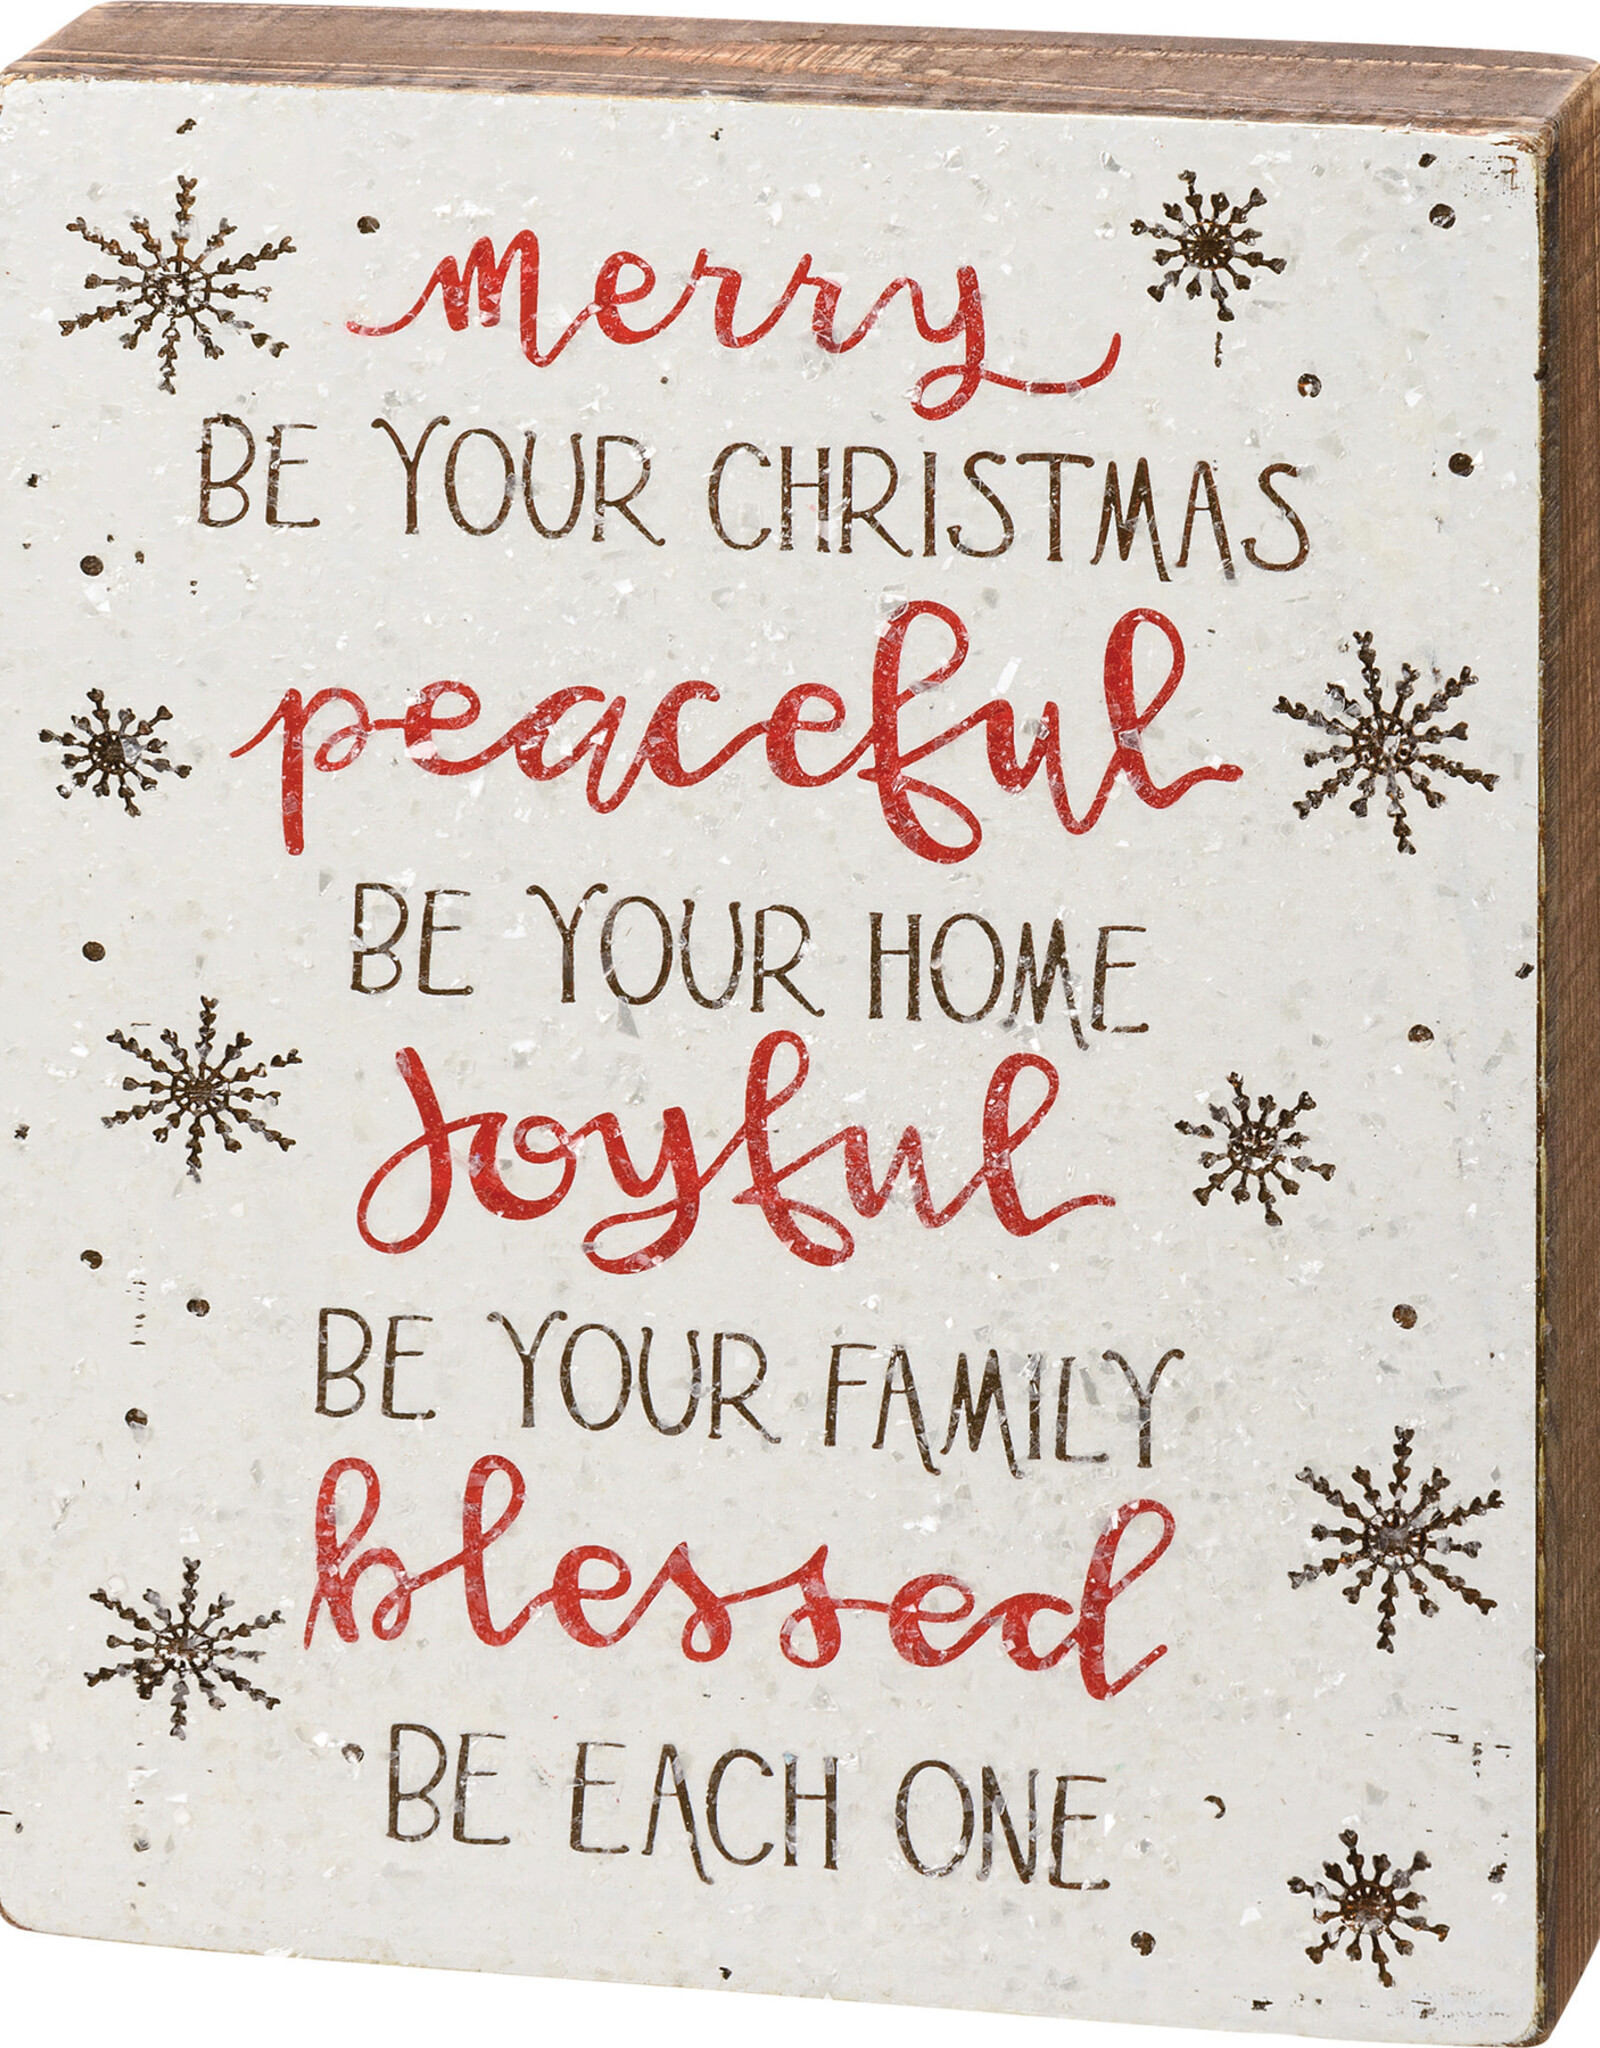 merry
BE YOUR CHRISTMAS
peaceful
BE YOUR HOME
Joyful
BE YOUR FAMILY
blessed
BE EACH ONE